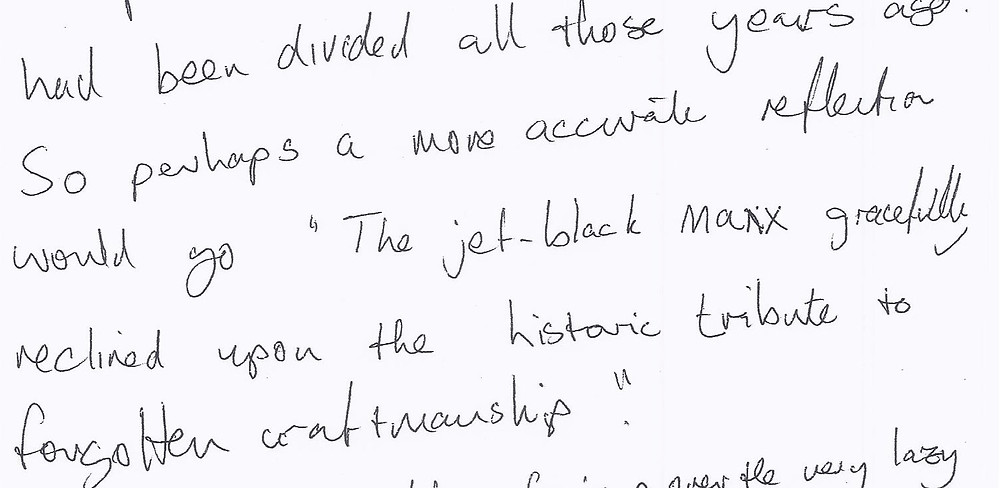 had been divided all those years ago.
So perhaps a more accurate reflection
would go "The jet-black Manx gracefully
reclined upon the historic tribute to
forgotten craftmanship".
over the very lazy